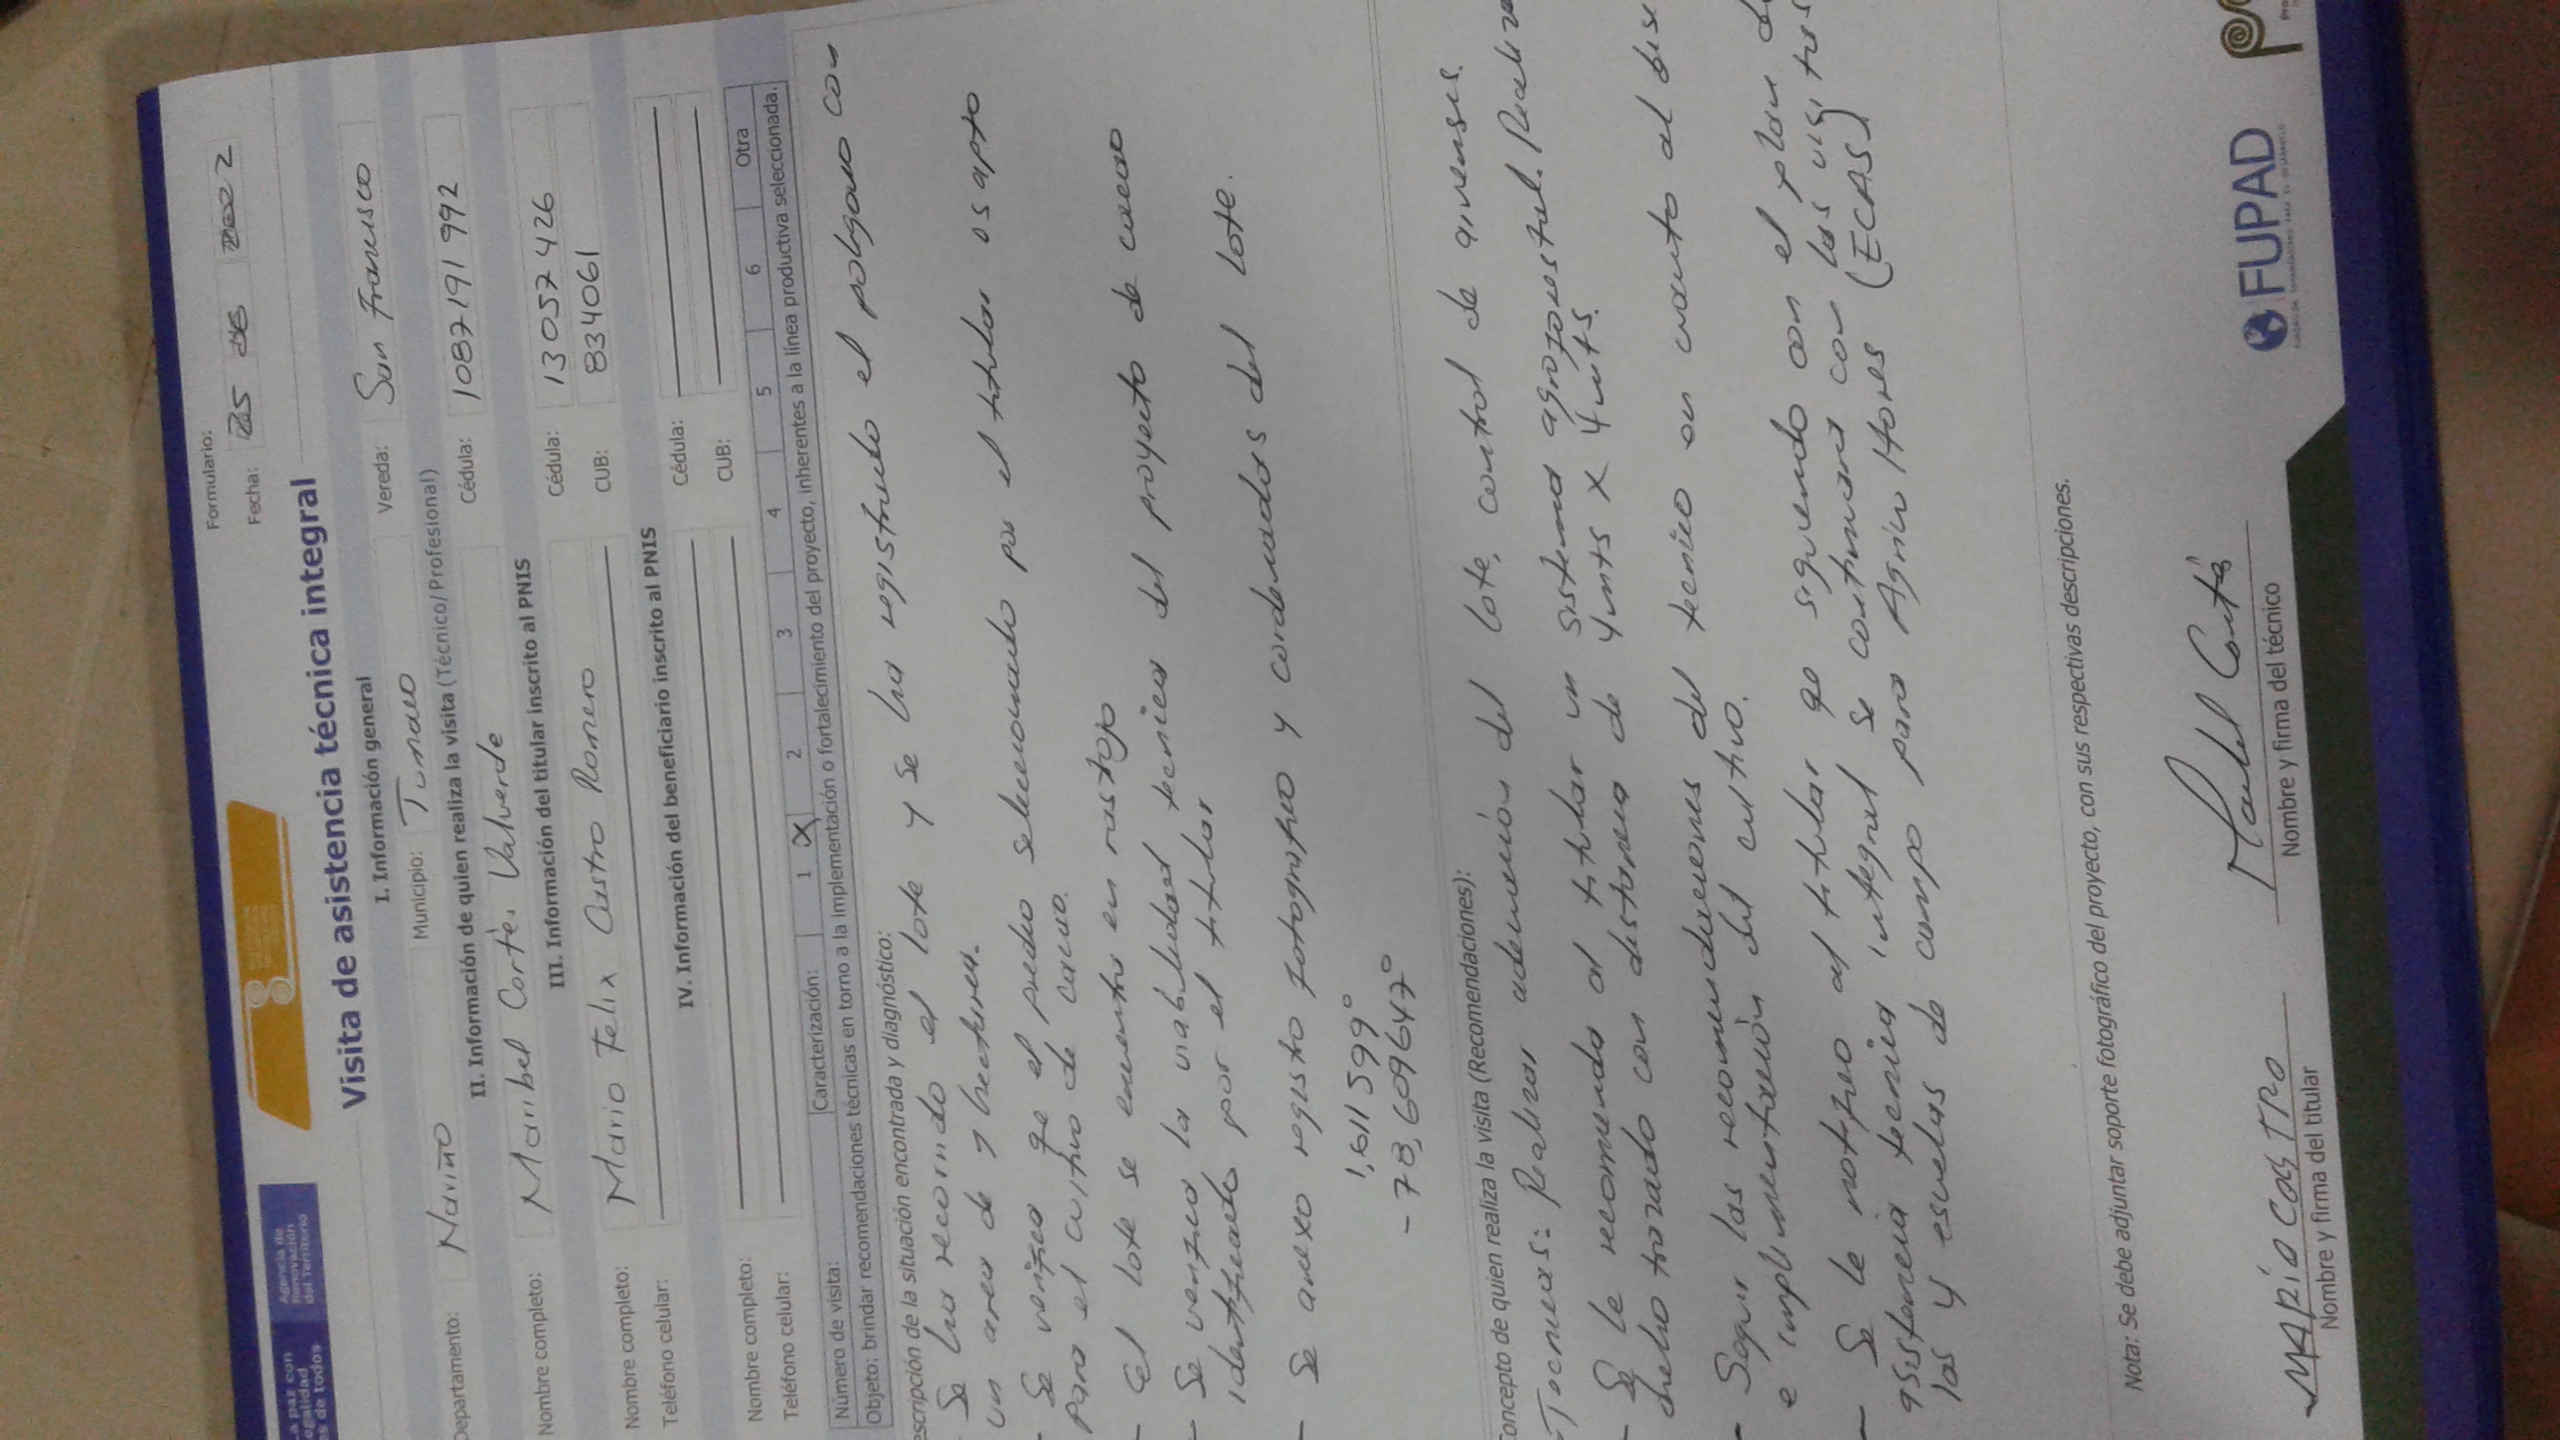 Formulario:
Fecha: 25 06 2022
La paz con
legalidad
es de todos
Agencia de
Renovación
del Territorio
Visita de asistencia técnica integral
I. Información general
Departamento: Nariño Municipio: Tumaco Vereda: San Francisco
II. Información de quien realiza la visita (Técnico/Profesional)
Nombre completo: Maribel Cortès Valverde Cédula: 1087191992
III. Información del titular inscrito al PNIS
Nombre completo: Mario Felix Castro Romero Cédula: 13057426
Teléfono celular: CUB: 834061
IV. Información del beneficiario inscrito al PNIS
Nombre completo: Cédula:
Teléfono celular: CUB:
Número de visita: Caracterización: 1 X 2 3 4 5 6 Otra
Objeto: brindar recomendaciones técnicas en torno a la implementación o fortalecimiento del proyecto, inherentes a la línea productiva seleccionada.
escripción de la situación encontrada y diagnóstico:
- Se ha recorrido el lote y se ha registrado el poligono con
un area de hectarea.
- Se verifico qe el predio seleccionado por el titular es apto
para el cultivo de cacao.
- El lote se encuentra en rastrojo
- Se verifico la viabilidad tecnica del proyecto de cacao
identificado por el titular
- Se anexo registro fotografico y cordenadas del lote.
1,611599°
-78,609647°
oncepto de quien realiza la visita (Recomendaciones):
Tecnicas: Realizar adecuación del lote, control de arvenses.
- Se le recomienda al titular un sistema agroforestal. Realizar
dicho trazado con distancia de 4mts x 4mts.
- Seguir las recomendaciones del tecnico en cuanto al
e implementación del cultivo.
- Se le notifico al titular qe siguiendo con el plan de
asistencia tecnica integral se continuara con las visitas
las y escuelas de campo para Agricultores (ECAS)
Nota: Se debe adjuntar soporte fotográfico del proyecto, con sus respectivas descripciones.
MARIO CASTRO
Nombre y firma del titular
Maribel Cortés
Nombre y firma del técnico
FUPAD